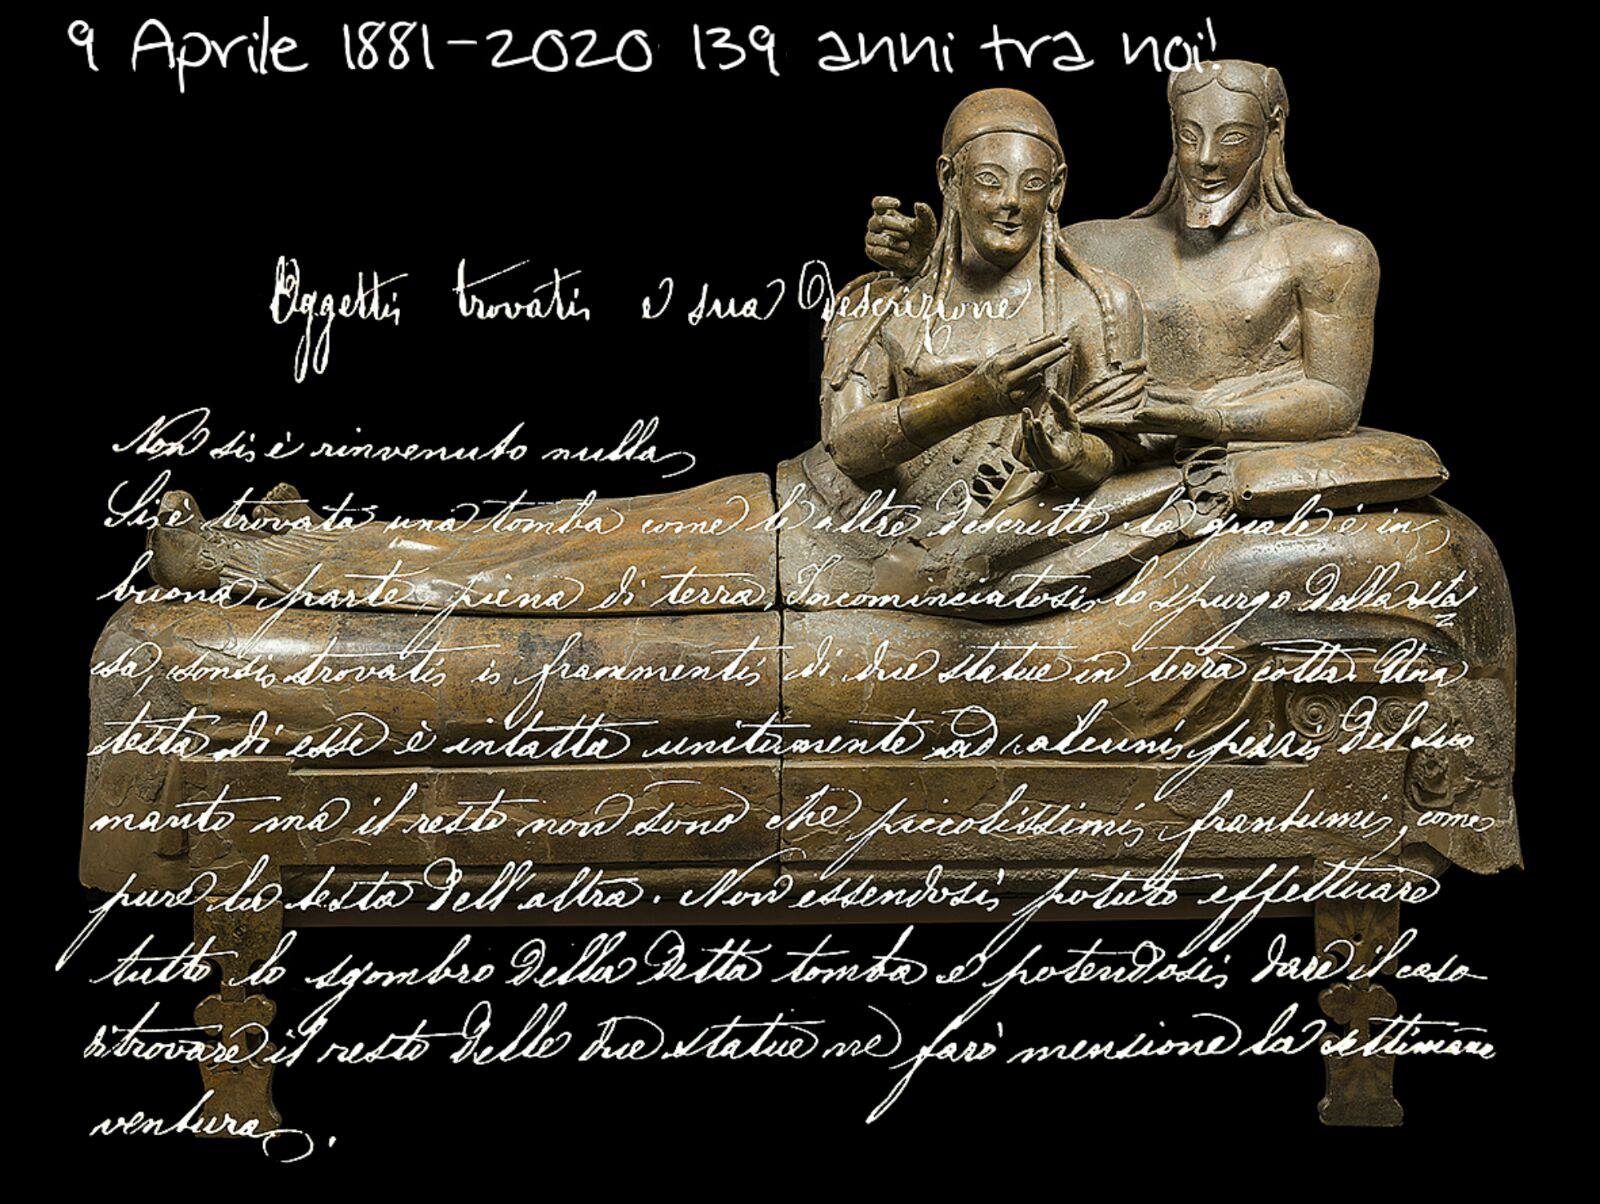 9 Aprile 1881-2020 139 anni tra noi!
Oggetti trovati e sua Descrizione
Non si è rinvenuto nulla
Si è trovata una tomba come le altre descritte, la quale è in
buona parte piena di terra. Incominciatosi lo spurgo della stes
sa, sonsi trovati i frammenti di due statue in terra cotta. Una
testa di esse è intatta unitamente ad alcuni pezzi del suo
manto ma il resto non sono che piccolissimi frantumi, come
pure la testa dell'altra. Non essendosi potuto effettuare
tutto lo sgombro della detta tomba e potendosi dare il caso
ritrovare il resto delle due statue ne farò mensione la settimana
ventura.